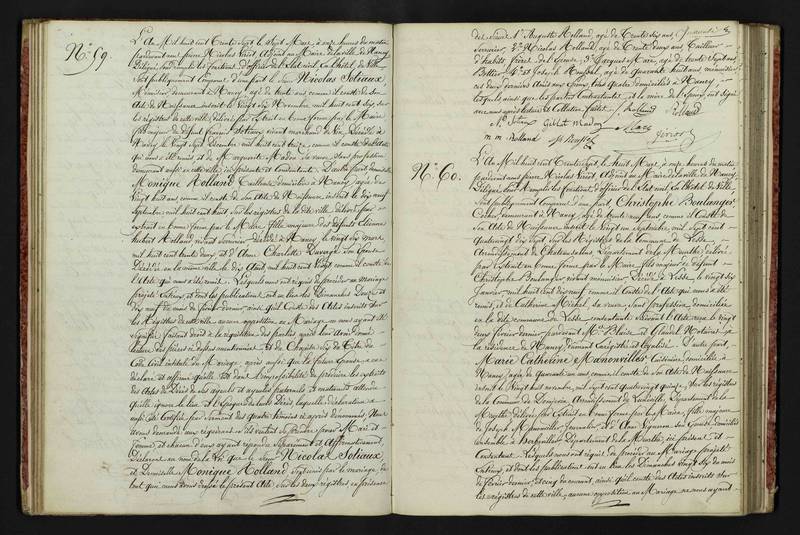 N.° 59.
L'An Mil huit cent trente sept le sept Mars, à onze heures du matin
pardevant nous Nicolas Noisot Adjoint au Maire de la ville de Nancy
Délégué pour remplir les fonctions d'officier de l'Etat civil en l'hôtel de Ville
sont publiquement comparus d'une part le sieur Nicolas Sotiaux
Menuisier demeurant à Nancy, agé de trente ans comme il conste de son
Acte de Naissance inscrit le vingt six Novembre mil huit cent six sur
les registres de cette ville délivré par extrait en bonne forme par le Maire
fils majeur de défunt
Nancy le vingt sept Décembre mil huit cent treize, comme il conste de l'Acte
qui nous a été remis et de Marguerite Madon sa veuve sans profession
demeurant au dit lieu ici présente et Consentante. D'autre part demoiselle
Monique Rolland Tailleuse domiciliée à Nancy, agée de
Vingt huit ans comme il conste de son Acte de Naissance inscrit le dix neuf
Septembre mil huit cent huit sur les registres de la dite ville délivré par
extrait en bonne forme par le Maire fille majeure des défunts Etienne
Hubert Rolland vivant Serrurier décédé à Nancy, le vingt six mars
mil huit cent trente deux, et d'Anne Charlotte Sauvage son Epouse
Décédée en la même ville le dix Août mil huit cent vingt comme il conste de
l'Acte qui nous a été remis. Lesquels nous ont requis de procéder au mariage
projeté entre eux, et dont les publications ont eu lieu les Dimanches Douze et
dix neuf du mois de février dernier ainsi qu'il conste des Actes inscrits sur
les Registres de cette ville, aucune opposition au Mariage ne nous ayant été
signifiée faisant droit à la réquisition des parties après leur avoir donné
lecture des pièces ci dessus mentionnées et du Chapitre Six du Titre du
Code Civil intitulé du Mariage, après aussi que la future épouse a
déclaré et affirmé qu'elle est dans l'impossibilité de produire les extraits
des Actes de Décès de ses ayeuls et ayeules paternels et maternels attendu
qu'elle ignore le lieu et l'époque de leurs Décès, laquelle déclaration a
aussi été certifiée par serment des quatre témoins ci après dénommés Nous
avons demandé aux requérants s'ils veulent se prendre pour Mari et
femme et chacun d'eux ayant répondu séparément et affirmativement,
Déclarons au nom de la loi que le sieur Nicolas Sotiaux
et Demoiselle Monique Rolland sont unis par le mariage de
tout quoi nous avons dressé le présent Acte sur les deux registres en présence
des sieurs 1° Auguste Rolland, agé de trente six ans
Serrurier, 2° Nicolas Rolland, agé de trente deux ans Tailleur
d'habits frères de l'épouse, 3° Jacques Mare, agé de trente sept ans
Bottier 4° et Joseph agé de quarante huit ans menuisier
ces deux derniers Amis aux Epoux, tous quatre domiciliés à Nancy
lesquels ainsi que les parties Contractantes, et la mère de l'Epoux, ont signé
avec nous après lecture et Collation faites.
Rolland Rolland
N. Sotiaux Madon Mare
m m Rolland Noisot
N.° 60.
L'An Mil huit cent trente sept, le huit Mars, à onze heures du matin
pardevant nous Nicolas Noisot Adjoint au Maire de la ville de Nancy,
Délégué pour Remplir les fonctions d'officier de l'Etat civil en l'hôtel de Ville,
sont publiquement comparus d'une part, Christophe Boulanger
Cocher, demeurant à Nancy, agé de trente neuf ans comme il conste de
son Acte de Naissance inscrit le vingt un septembre mil sept cent
quatre vingt dix sept sur les Registres de la commune de Lesse
Arrondissement de Chateau-Salins, Département de la Meurthe délivré
par extrait en bonne forme par le Maire, fils majeur de défunt
Christophe Boulanger vivant manouvrier, Décédé à Lesse le vingt six
Janvier mil huit cent dix neuf comme il conste de l'Acte qui nous a été
remis, et de Catherine Michel sa veuve sans profession domiciliée
en la dite commune de Lesse consentante suivant l'Acte reçu le vingt
deux février dernier, pardevant Mtres. Blaise et Claudel Notaires à
la résidence de Nancy dûment enregistré et légalisé. D'autre part,
Marie Catherine Manonviller Cuisinière domiciliée à
Nancy, agée de quarante un ans comme il conste de son Acte de Naissance
inscrit le vingt huit novembre, mil sept cent quatre vingt quinze, sur les registres
de la Commune de Arrondissement de Lunéville, Département de la
Meurthe délivré par extrait en bonne forme par le Maire, fille majeure
de Joseph Manonviller Journalier, et d'Anne son Epouse domiciliés
ensemble à Département de la Meurthe, ici présents et
Consentants. Lesquels nous ont requis de procéder au Mariage projeté
entre eux, et dont les publications ont eu lieu les Dimanches vingt six du mois
de février dernier et cinq du courant, ainsi qu'il conste des Actes inscrits sur
les registres de cette ville, aucune opposition au Mariage ne nous ayant